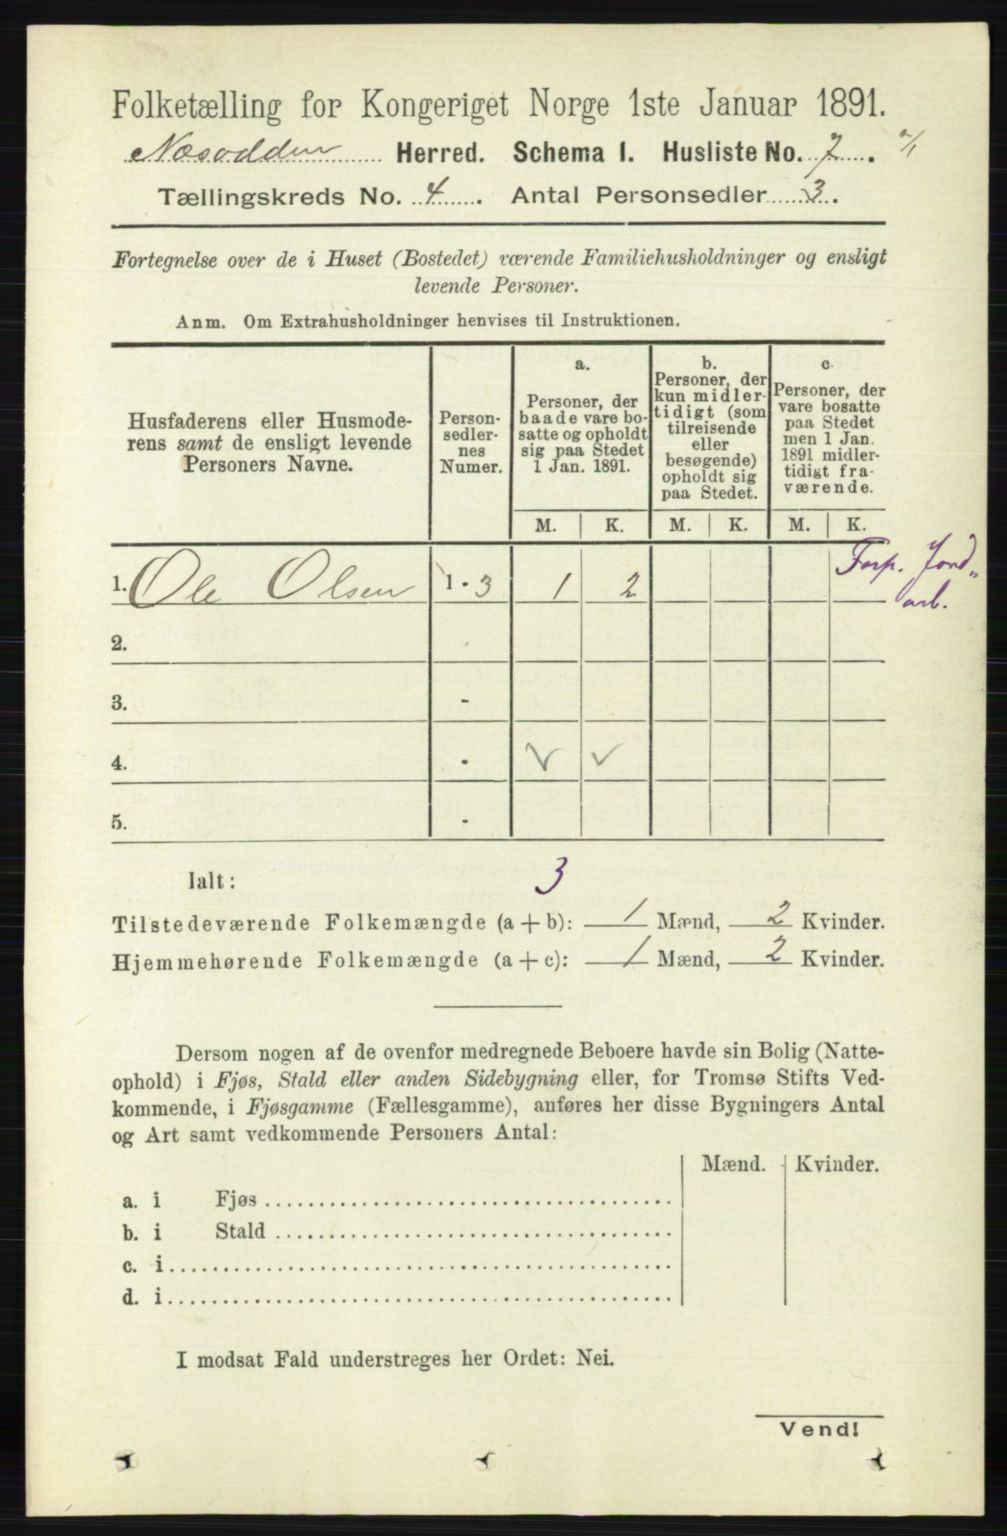 Folketælling for Kongeriget Norge 1ste Januar 1891.
Næsodden Herred. Schema I. Husliste No. 7.
Tællingskreds No. 4. Antal Personsedler 3.
Fortegnelse over de i Huset (Bostedet) værende Familiehusholdninger og ensligt
levende Personer.
Anm. Om Extrahusholdninger henvises til Instruktionen.
Husfaderens eller Husmode-
rens samt de ensligt levende
Personers Navne.
Person-
sedler-
nes
Numer.
a.
Personer, der
baade vare bo-
satte og opholdt
sig paa Stedet
1 Jan. 1891.
b.
Personer, der
kun midler-
tidigt (som
tilreisende
eller
besøgende)
opholdt sig
paa Stedet.
c.
Personer, der
vare bosatte
paa Stedet
men 1 Jan.
1891 midler-
tidigt fra-
værende.
M. K. M. K. M. K.
1. Ole Olsen 1 - 3 1 2 Forp. Jord-
arb.
2.
3. -
4. -
5. -
Ialt: 3
Tilstedeværende Folkemængde (a + b): 1 Mænd, 2 Kvinder.
Hjemmehørende Folkemængde (a + c): 1 Mænd, 2 Kvinder.
Dersom nogen af de ovenfor medregnede Beboere havde sin Bolig (Natte-
ophold) i Fjøs, Stald eller anden Sidebygning eller, for Tromsø Stifts Ved-
kommende, i Fjøsgamme (Fællesgamme), anføres her disse Bygningers Antal
og Art samt vedkommende Personers Antal:
Mænd. Kvinder.
a. i Fjøs
b. i Stald
c. i
d. i
I modsat Fald understreges her Ordet: Nei.
Vend!